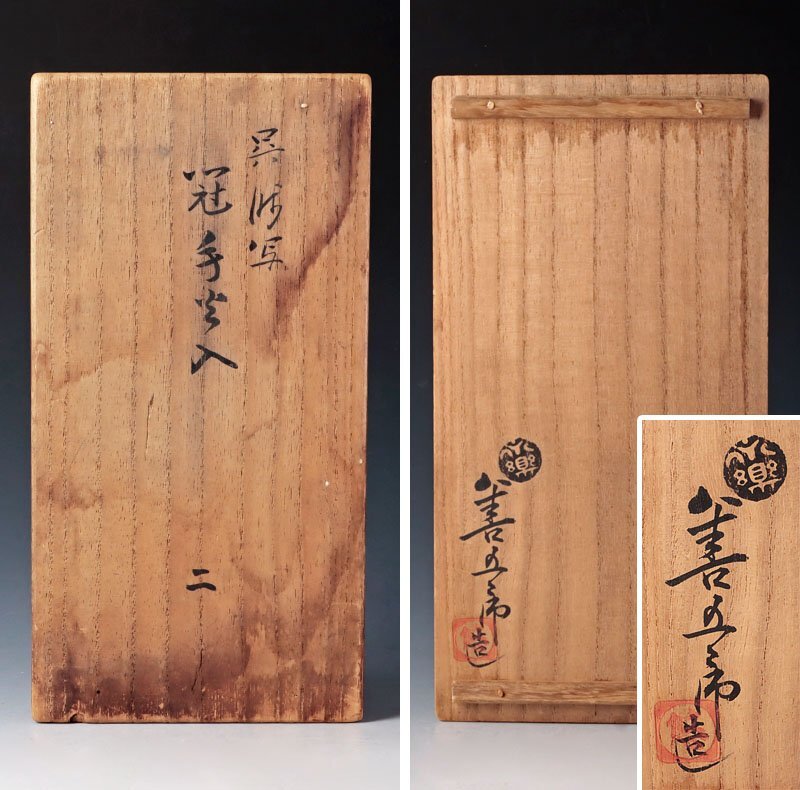 呉洲写
冠手火入
二
永樂
善五郎造
永樂
善五郎造